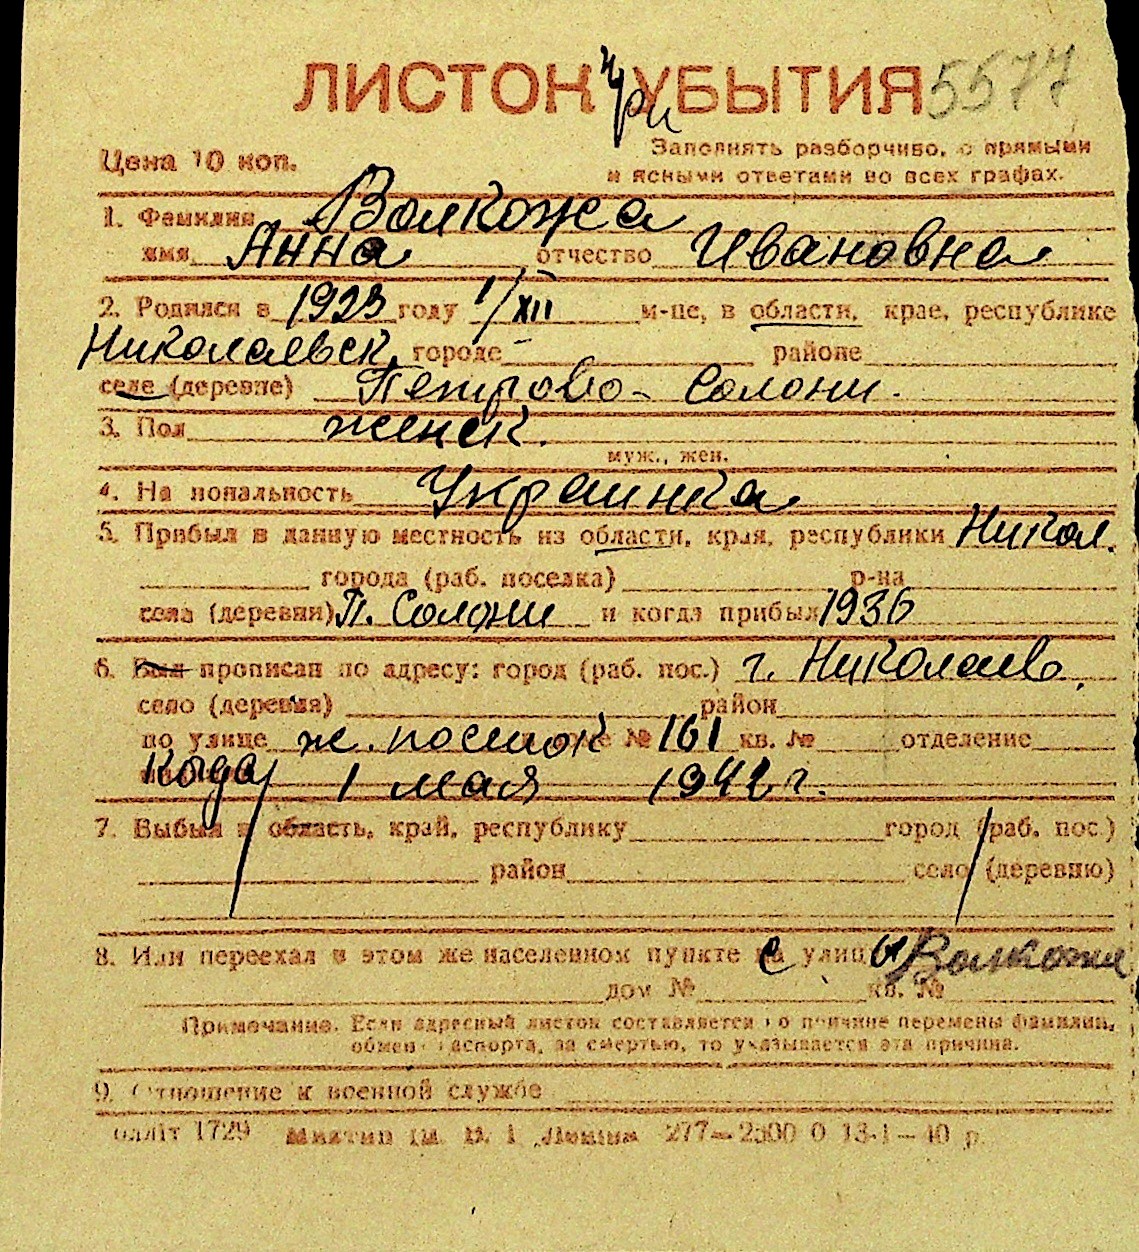 ЛИСТОК при УБЫТИЯ 5577
Цена 10 коп.
Заполнять разборчиво, с прямыми
и ясными ответами во всех графах.
1. Фамилия Волкожа
имя Анна отчество Ивановна
2. Родился в 1923 году 1/XII м-це, в области, крае, республике
Николаевск. городе районе
селе (деревне) Петрово-Солони.
3. Пол женск.
муж., жен.
4. На пональность Украинка
5. Прибыл в данную местность из области, края, республики Никол.
города (раб. поселка) р-на
села (деревни) П. Солони и когда прибыл 1936
6. Был прописан по адресу: город (раб. пос.) г. Николаев.
село (деревня) район
по улице ж. поселок № 161 кв. № отделение
Когда 1 мая 1942 г.
7. Выбыл в область, край, республику город (раб. пос.)
район село (деревню)
8. Или переехал в этом же населенном пункте с улицы Волкожа
дом № кв. №
Примечание. Если адресный листок составляется по причине перемены фамилии,
обмен паспорта, за смертью, то указывается эта причина.
9. Отношение к военной службе
1729 277—2500 0 13-1—40 р.